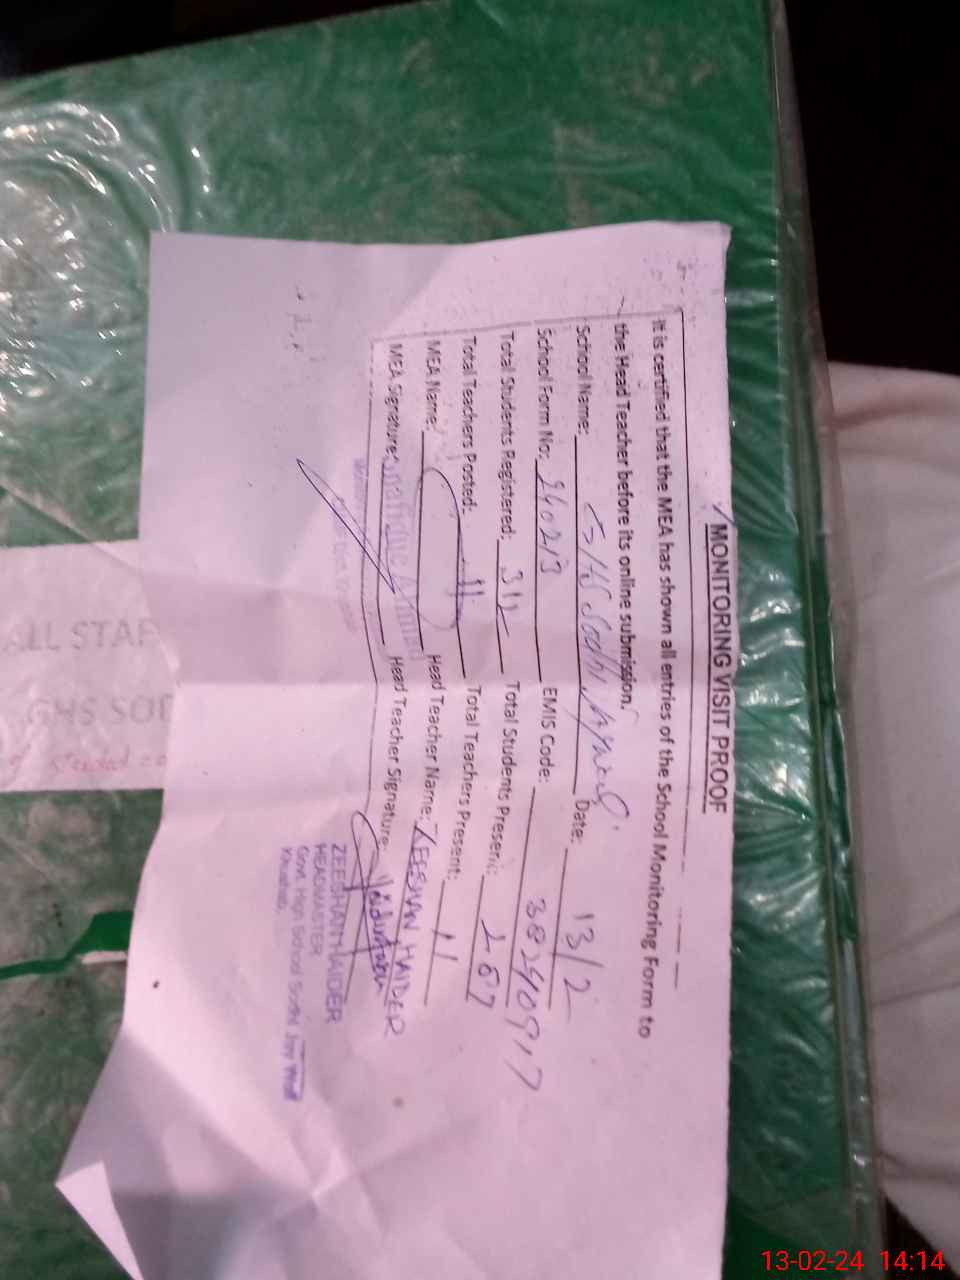 MONITORING VISIT PROOF
It is certified that the MEA has shown all entries of the School Monitoring Form to
the Head Teacher before its online submission.
School Name: GHS Sodhi Date: 13/2
School Form No: 240213 EMIS Code: 38240917
Total Students Registered: 312 Total Students Present: 207
Total Teachers Posted: 11 Total Teachers Present: 11
MEA Name: Head Teacher Name: ZEESHAN HAIDER
MEA Signature: Head Teacher Signature:
ZEESHAN HAIDER
HEADMASTER
Govt. High School Sodhi Jay Wali
Khushab
ALL STAF
GHS SOD
13-02-24 14:14